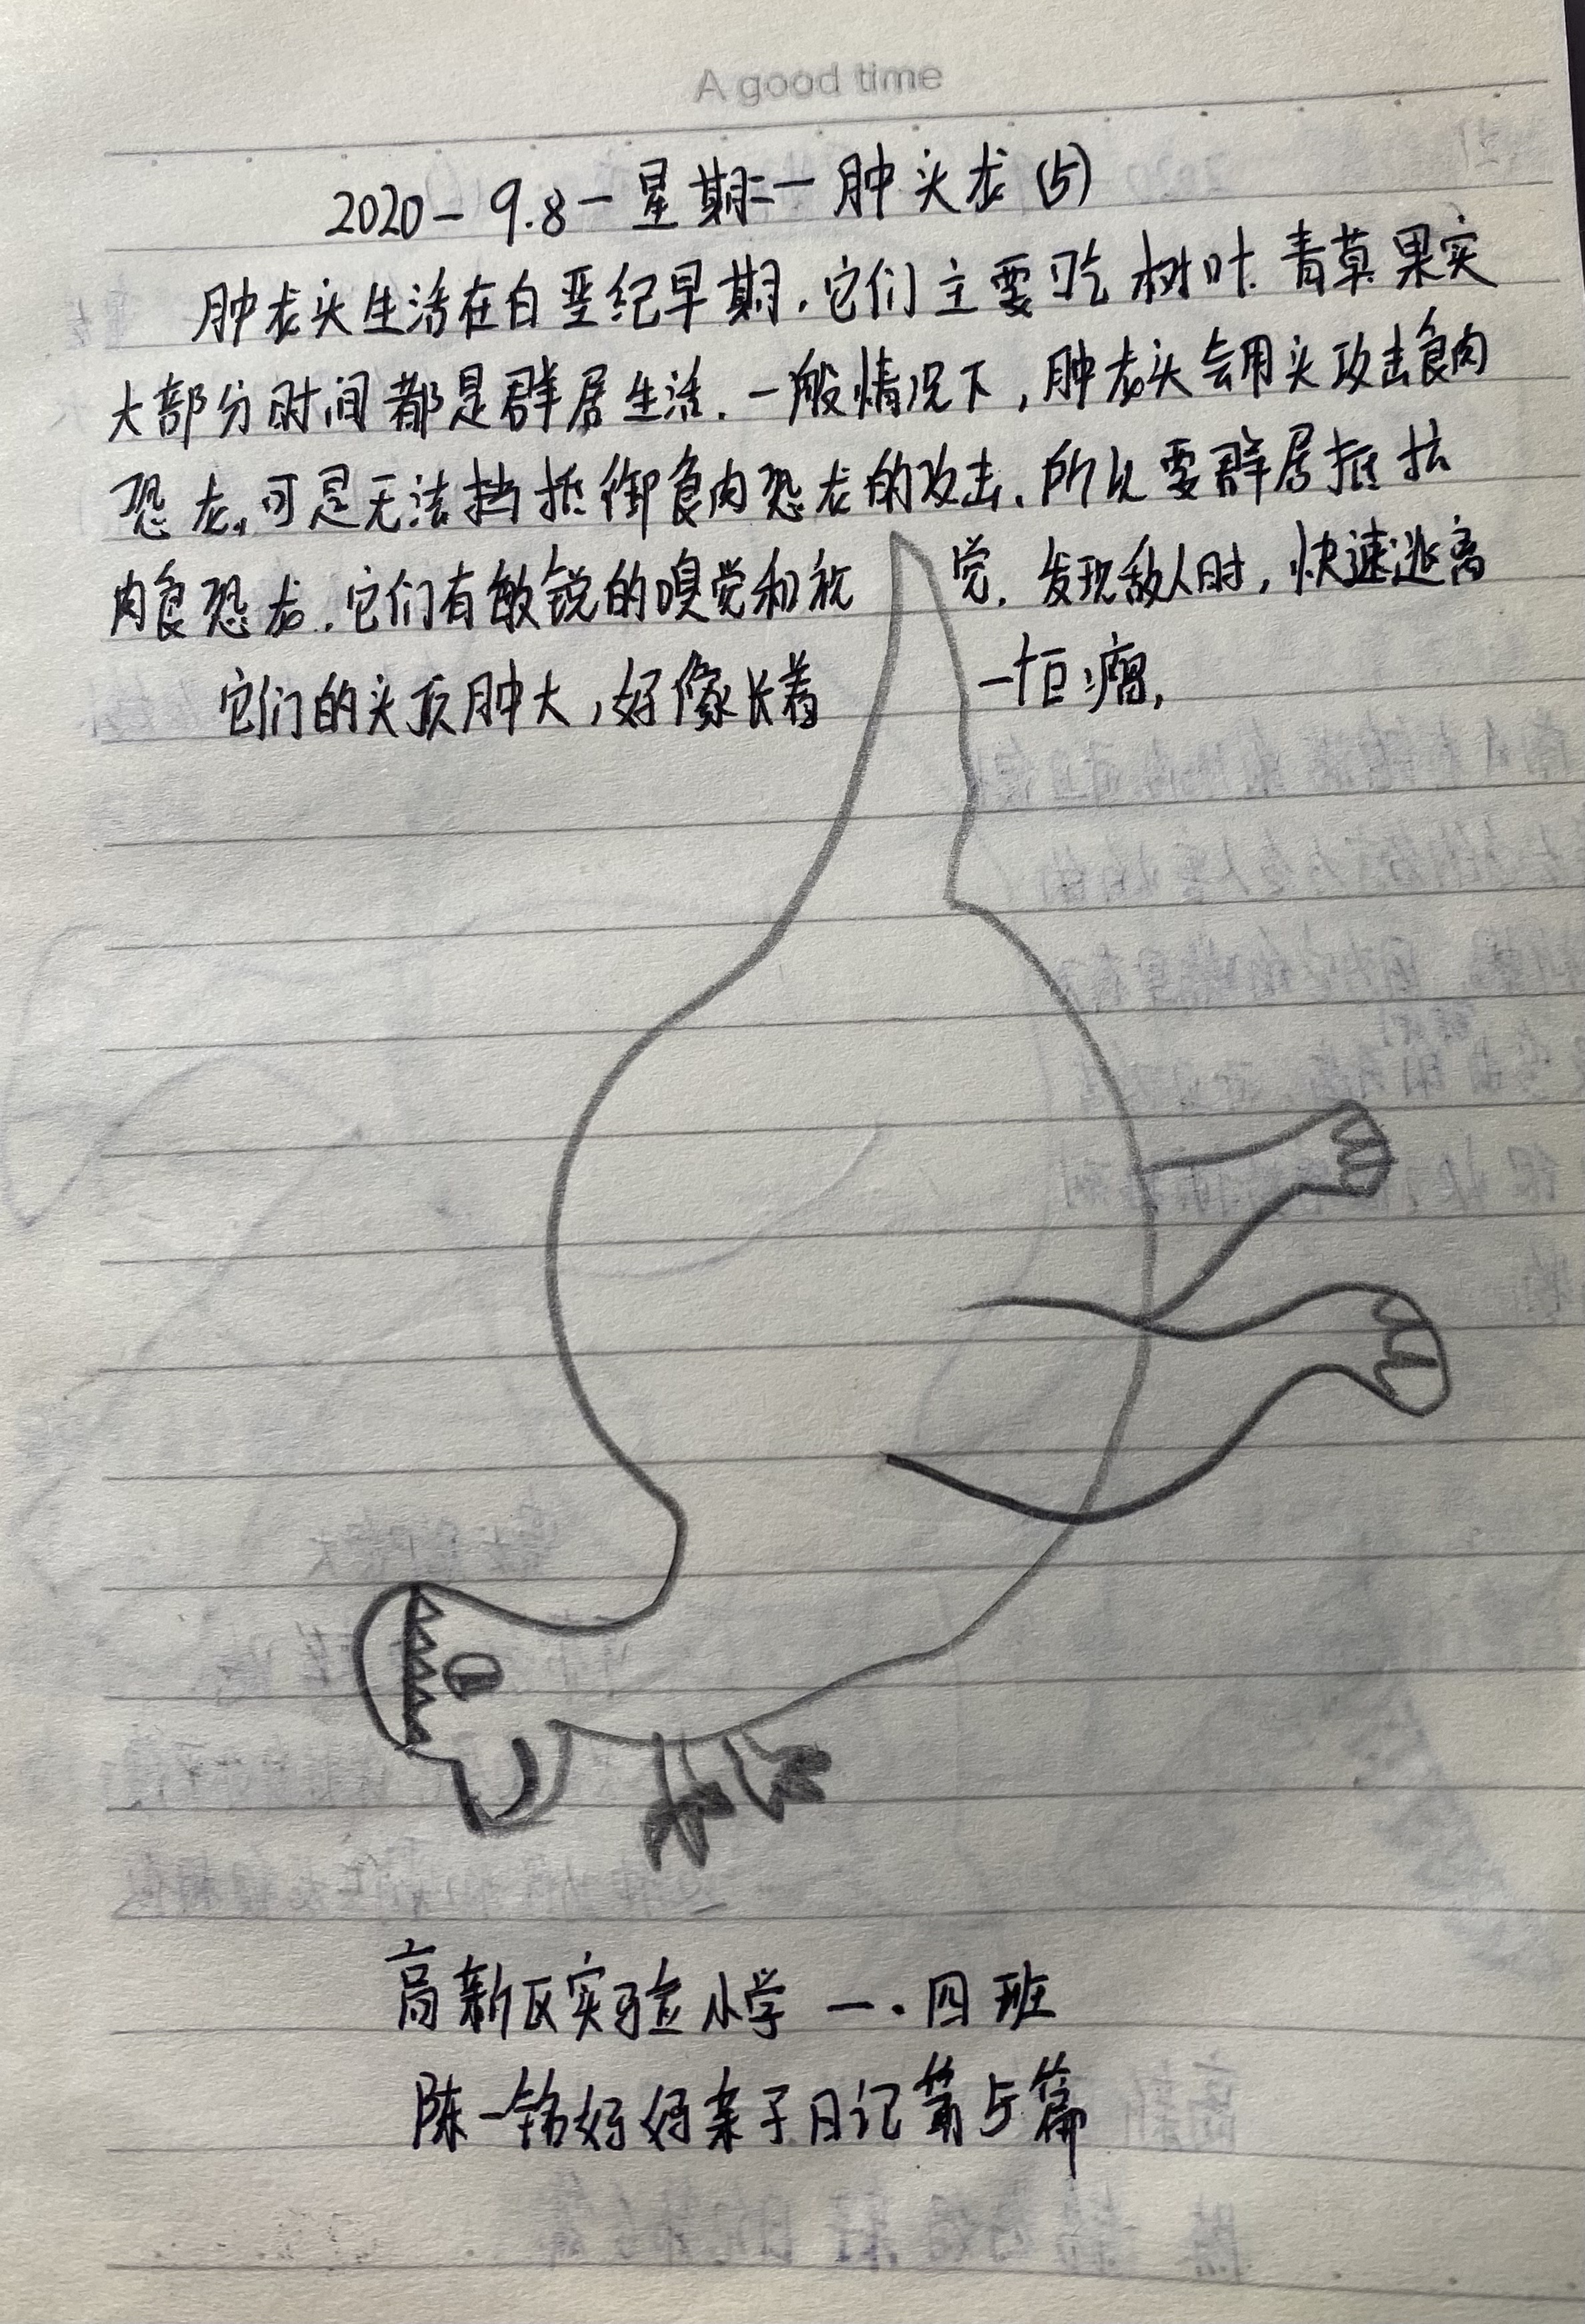 A good time
2020-9.8-星期二-肿头龙(5)
肿龙头生活在白垩纪早期.它们主要吃树叶.青草.果实
大部分时间都是群居生活.一般情况下,肿龙头会用头攻击食肉
恐龙.可是无法挡抵御食肉恐龙的攻击.所以要群居抵抗
肉食恐龙.它们有敏锐的嗅觉和视觉.发现敌人时,快速逃离
它们的头顶肿大,好像长着一个巨瘤,
高新区实验小学 一.四班
陈一铭好好亲子日记第5篇